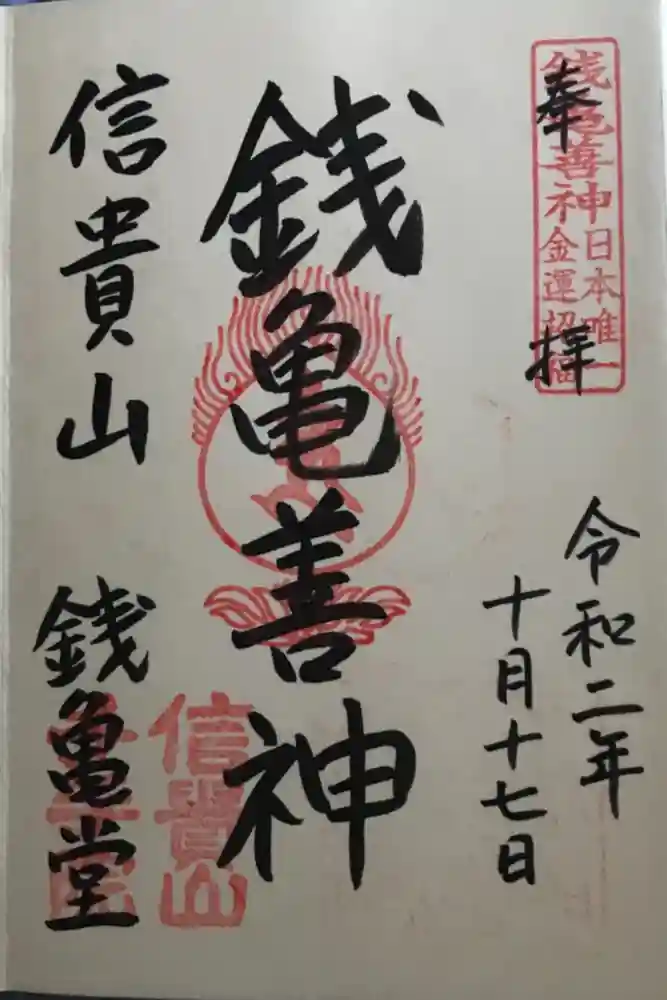 奉拝
銭亀善神
日本唯一
金運招福
令和二年
十月十七日
銭亀善神
信貴山
銭亀堂
信貴山